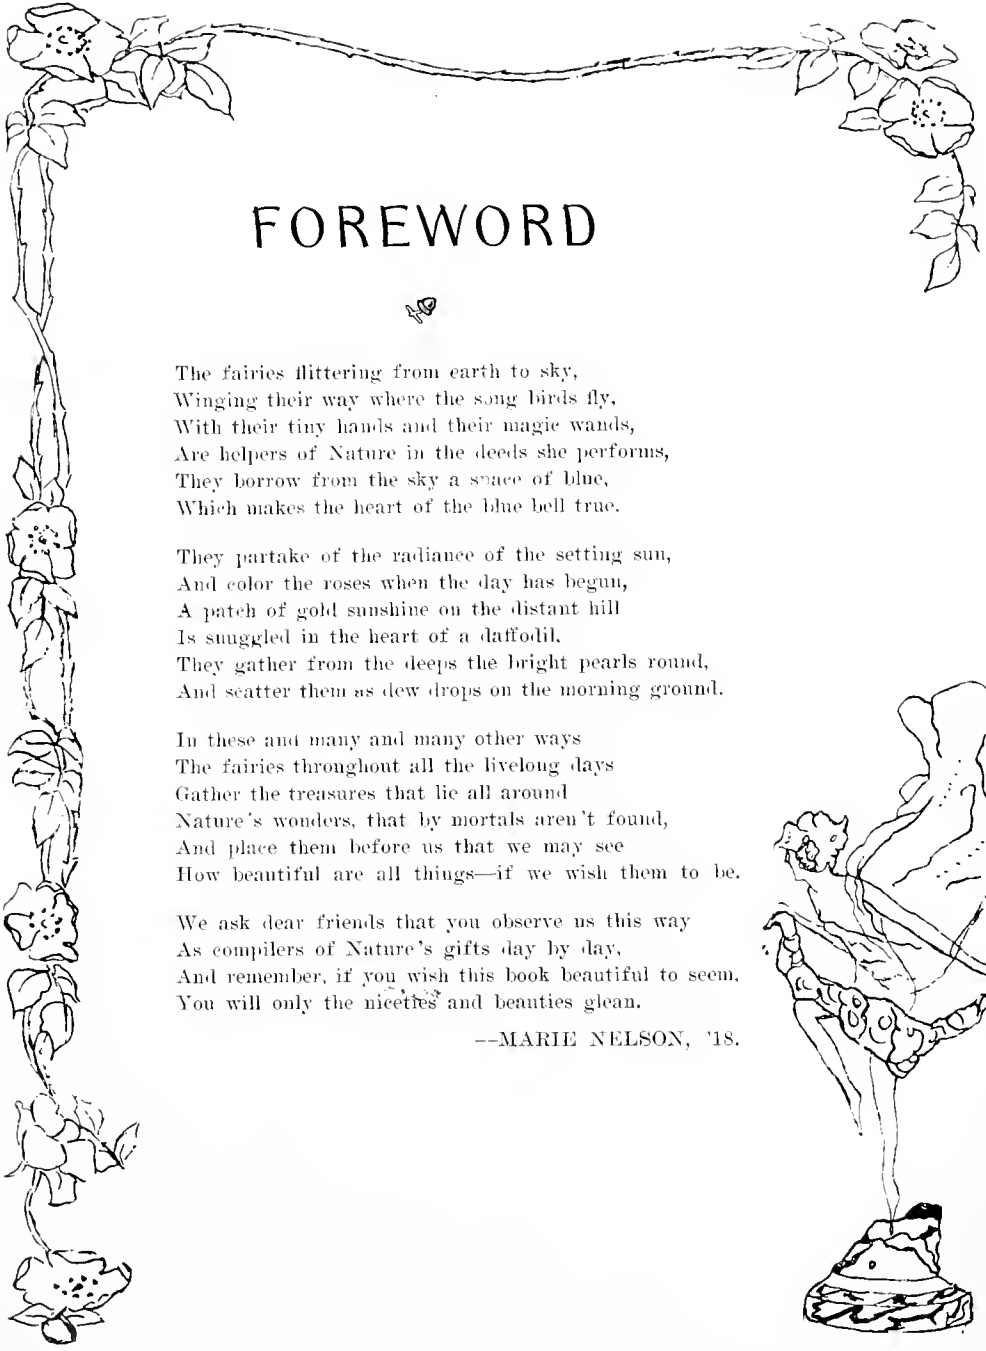 FOREWORD
The fairies flittering from earth to sky,
Winging their way where the song birds fly,
With their tiny hands and their magic wands,
Are helpers of Nature in the deeds she performs,
They borrow from the sky a space of blue,
Which makes the heart of the blue bell true.
They partake of the radiance of the setting sun,
And color the roses when the day has begun,
A patch of gold sunshine on the distant hill
Is snuggled in the heart of a daffodil.
They gather from the deeps the bright pearls round,
And scatter them as dew drops on the morning ground.
In these and many and many other ways
The fairies throughout all the livelong days
Gather the treasures that lie all around
Nature's wonders, that by mortals aren't found,
And place them before us that we may see
How beautiful are all things—if we wish them to be.
We ask dear friends that you observe us this way
As compilers of Nature's gifts day by day,
And remember, if you wish this book beautiful to seem,
You will only the niceties and beauties glean.
--MARIE NELSON, '18.